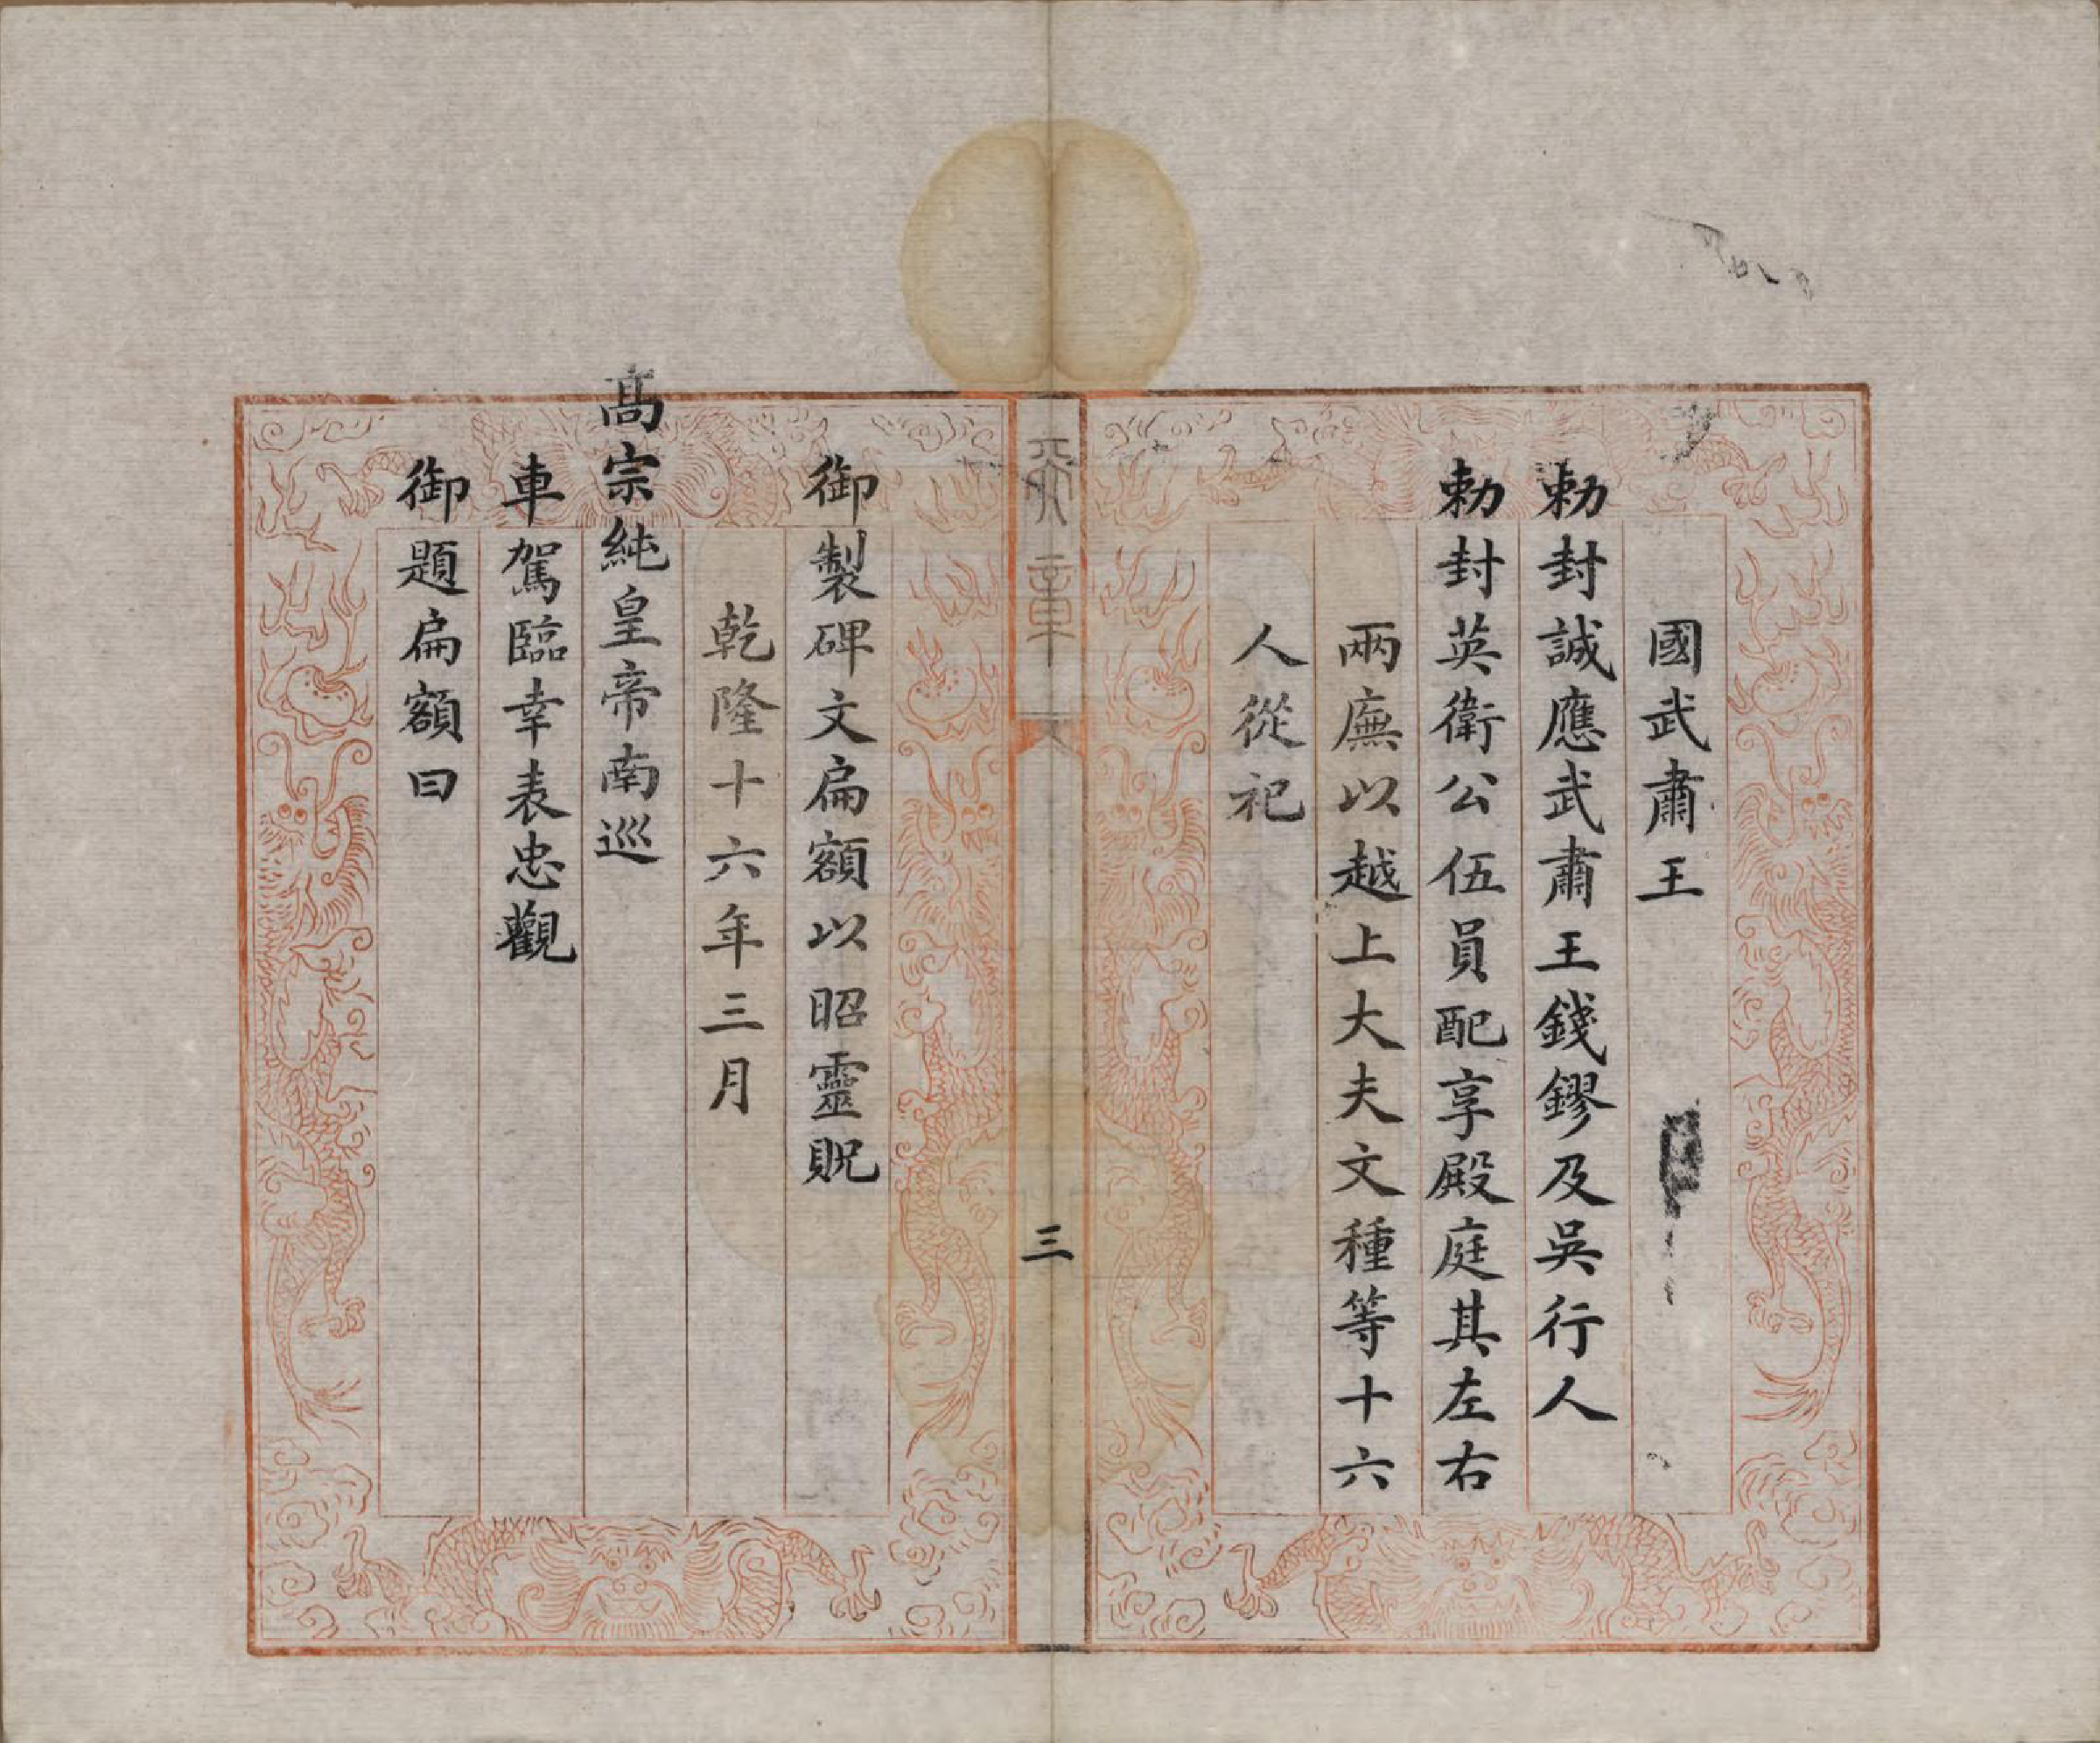 國武肅王
勅封誠應武肅王錢鏐及吳行人
勅封英衛公伍員配享殿庭其左右
兩廡以越上大夫文種等十六
人從祀
章
三
御製碑文扁額以昭靈貺
乾隆十六年三月
高宗純皇帝南巡
車駕臨幸表忠觀
御題扁額曰